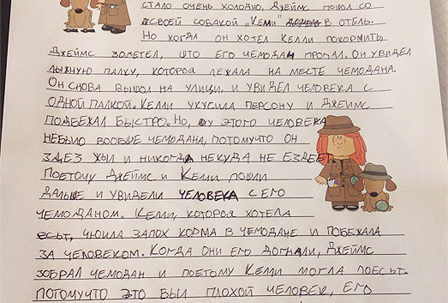 стало очень холодно, Джеймс пошол со
своей собакой „Кеми" в отель.
Но когда он хотел Келли покормить,
Джеймс заметел, што его чемодан пропал. Он увидел
лыжную палку, которая лежала на месте чемодана.
Он снова вышол на улици, и увидел человека с
одной палкой. Келли укусила персону и Джеймс
подбежал быстро. Но, у этого человека
небыло вообше чемодана, потомучто он
здез жыл и никогда некуда не ездеет.
Поетому Джеймс и Келли пошли
дальше и увидели человека с его
чемоданом. Келли, которая хотела
есьт, учюила запох корма в чемодане и побежала
за человеком. Когда они его догнали, Джеймс
зобрал чемодан и поетому Келли могла поесьт.
Потомучто это был плохой человек, его